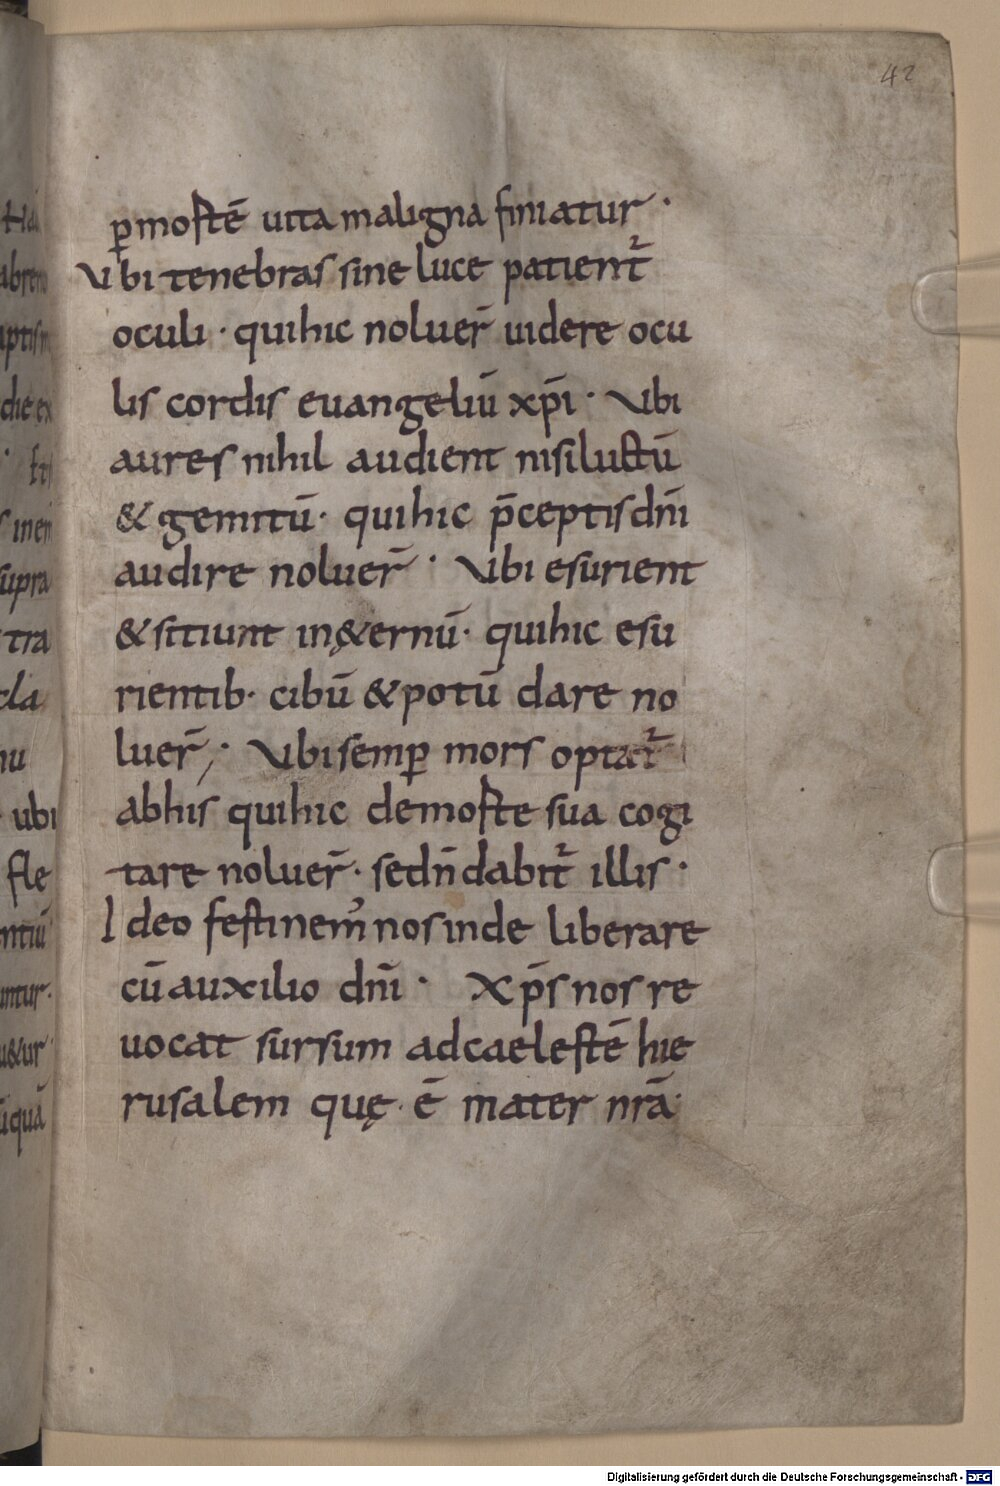 42
ꝑmortē uita maligna finiatur ·
Vbi tenebras sine luce patient̃
oculi · quihic noluer̄ uidere ocu
lis cordis euangeliū xp̄i · Vbi
aures nihil audient nisiluctū
& gemitū · quihic p̄ceptisdn̄i
audire noluer̄ · Vbi esurient
& sitiunt inę&ernū · quihic esu
rientib · cibū & potū dare no
luer̄ ; Vbisemꝑ mors optat̃
abhis quihic demorte sua cogi
tare noluer̄ · sedn̄ dabit̃ illis ·
Ideo festinem᾽ nosinde liberare
cū auxilio dn̄i · Xp̄s nos re
uocat sursum adcaelestē hie
rusalem quę · ē mater nr̄a ·
ubi
fle
ntiū
untur ·
u&ur
quā
supra
tra
nu
Digitalisierung gefördert durch die Deutsche Forschungsgemeinschaft - DFG